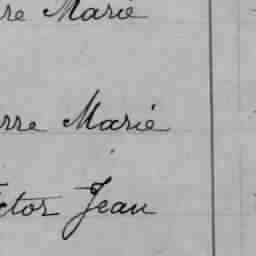 rre Marie
erre Marie
ictor Jean